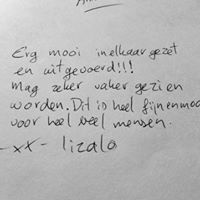 Erg mooi inelkaar gezet
en uitgevoerd!!!
Mag zeker vaker gezien
worden. Dit is heel
voor heel veel mensen.
-xx- lizalo